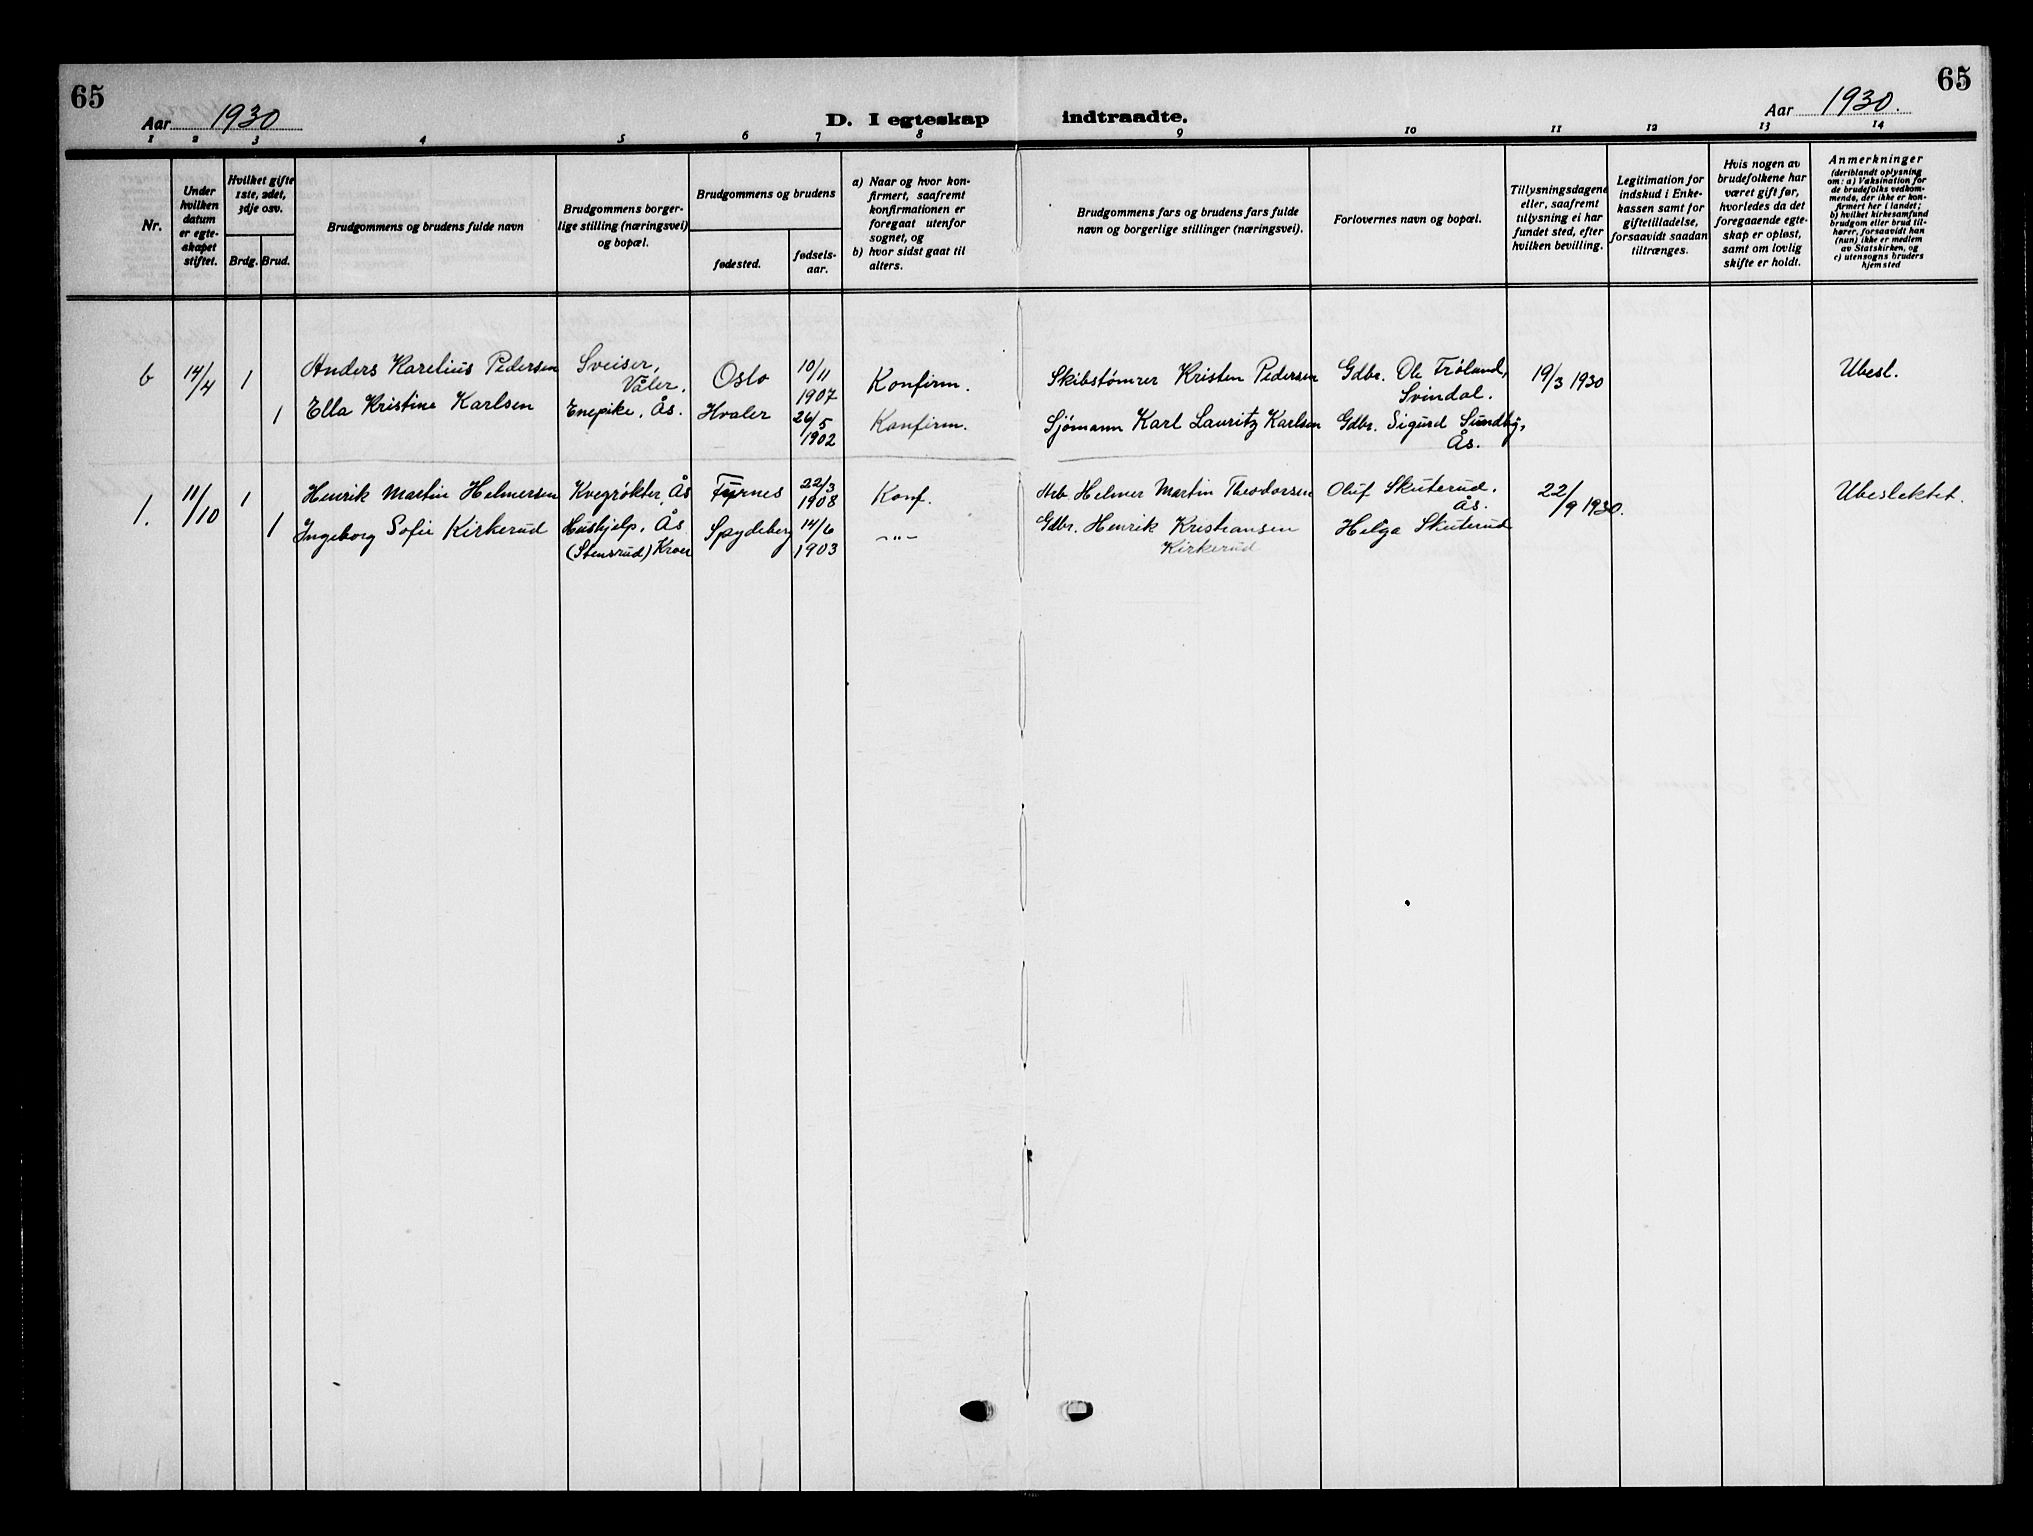 65
Aar 1930
D. I egteskap indtraadte.
Aar 1930.
65
1 2 3 4 5 6 7 8 9 10 11 12 13 14
Nr.
Under
hvilken
datum
er egte-
skapet
stiftet.
Hvilket gifte
1ste, 2det,
3dje osv.
Brdg. Brud.
Brudgommens og brudens fulde navn
Brudgommens borger-
lige stilling (næringsvei)
og bopæl.
Brudgommens og brudens
fødested.
fødsels-
aar.
a) Naar og hvor kon-
firmert, saafremt
konfirmationen er
foregaat utenfor
sognet, og
b) hvor sidst gaat til
alters.
Brudgommens fars og brudens fars fulde
navn og borgerlige stillinger (næringsvei).
Forlovernes navn og bopæl.
Tillysningsdagene
eller, saafremt
tillysning ei har
fundet sted, efter
hvilken bevilling.
Legitimation for
indskud i Enke-
kassen samt for
giftetilladelse,
forsaavidt saadan
tiltrænges.
Hvis nogen av
brudefolkene har
været gift før,
hvorledes da det
foregaaende egte-
skap er opløst,
samt om lovlig
skifte er holdt.
Anmerkninger
(deriblandt oplysning
om: a) Vaksination for
de brudefolks vedkom-
mende, der ikke er kon-
firmert her i landet;
b) hvilket kirkesamfund
brudgom eller brud til-
hører, forsaavidt han
(hun) ikke er medlem
av Statskirken, og
c) utensogns bruders
hjemsted
6 14/4 1 Anders Karelius Pedersen Sveiser, Våler. Oslo 10/11 1907 Konfirm. Skibstømrer Kristen Pedersen Gdbr. Ole Trøland, Svindal. 19/3 1930 Ubesl.
1 Ella Kristine Karlsen Enepike, Ås. Hvaler 26/5 1902 Konfirm. Sjømann Karl Lauritz Karlsen Gdbr. Sigurd Sundby, Ås.
1. 11/10 1 Henrik Martin Helmersen Kvegrøkter, Ås Furnes 22/3 1908 Konf. Arb Helmer Martin Theodorsen Oluf Skuterud. Ås. 22/9 1930. Ubeslektet.
1 Ingeborg Sofie Kirkerud Hushjelp, Ås (Stensrud) Kroer Spydeberg 14/6 1903 -"- Gdbr. Henrik Kristiansen Kirkerud Helga Skuterud